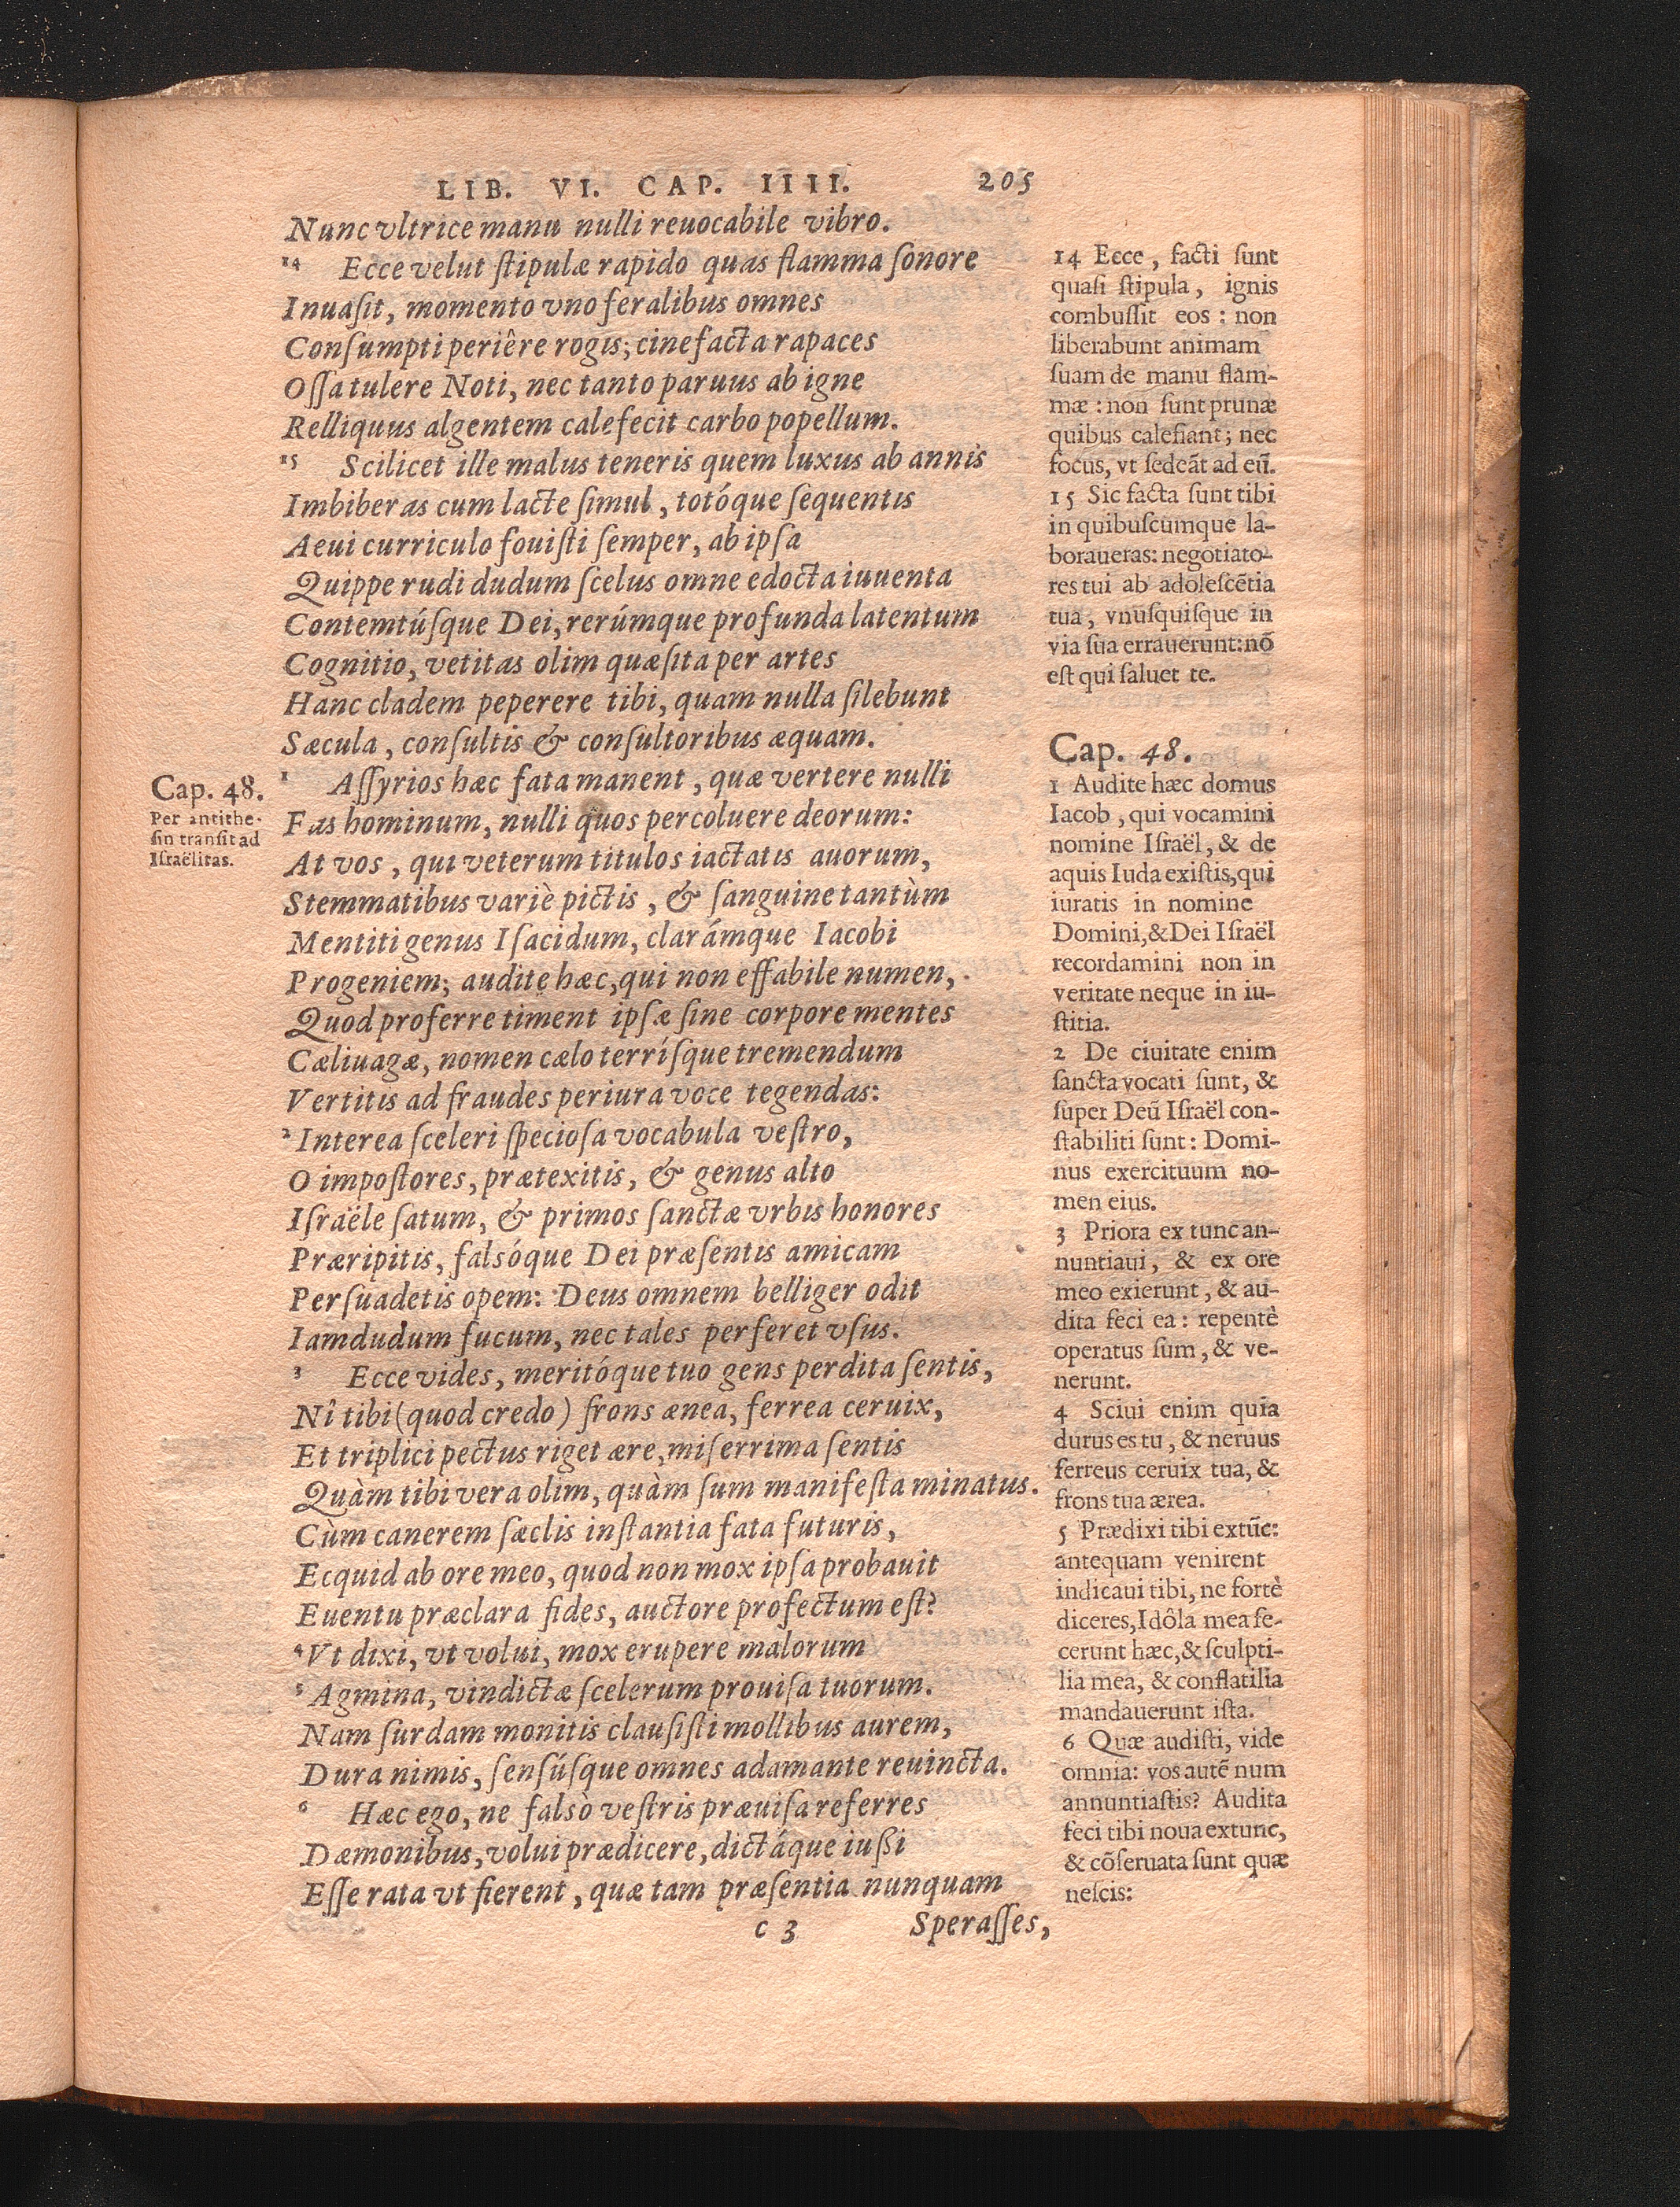 LIB. VI. CAP. IIII. 205
Nunc vltrice manu nulli reuocabile vibro.
14 Ecce velut ſtipulæ rapido quas flamma ſonore
Inuaſit, momento vno feralibus omnes
Conſumpti periêre rogis; cinefacta rapaces
Oſſa tulere Noti, nec tanto paruus ab igne
Relliquus algentem calefecit carbo popellum.
15 Scilicet ille malus teneris quem luxus ab annis
Imbiberas cum lacte ſimul, totóque ſequentis
Aeui curriculo fouiſti ſemper, ab ipſa
Quippe rudi dudum ſcelus omne edocta iuuenta
Contemtúſque Dei, rerúmque profunda latentum
Cognitio, vetitas olim quæſita per artes
Hanc cladem peperere tibi, quam nulla ſilebunt
Sæcula, conſultis & conſultoribus æquam.
1 Aſſyrios hæc fata manent, quæ vertere nulli
Fas hominum, nulli quos percoluere deorum:
At vos, qui veterum titulos iactatis auorum,
Stemmatibus variè pictis, & ſanguine tantùm
Mentiti genus Iſacidum, clarámque Iacobi
Progeniem; audite hæc, qui non effabile numen,
Quod proferre timent ipſæ ſine corpore mentes
Cæliuagæ, nomen cælo terríſque tremendum
Vertitis ad fraudes periura voce tegendas:
2 Interea ſceleri ſpecioſa vocabula veſtro,
O impoſtores, prætexitis, & genus alto
Iſraële ſatum, & primos ſanctæ vrbis honores
Præripitis, falsóque Dei præſentis amicam
Perſuadetis opem: Deus omnem belliger odit
Iamdudum fucum, nec tales perferet vſus.
3 Ecce vides, meritóque tuo gens perdita ſentis,
Nî tibi (quod credo) frons ænea, ferrea ceruix,
Et triplici pectus riget ære, miſerrima ſentis
Quàm tibi vera olim, quàm ſum manifeſta minatus.
Cùm canerem ſæclis inſtantia fata futuris,
Ecquid ab ore meo, quod non mox ipſa probauit
Euentu præclara fides, auctore profectum eſt?
4 Vt dixi, vt volui, mox erupere malorum
5 Agmina, vindictæ ſcelerum prouiſa tuorum.
Nam ſurdam monitis clauſiſti mollibus aurem,
Dura nimis, ſenſúſque omnes adamante reuincta.
6 Hæc ego, ne falsò veſtris præuiſa referres
Dæmonibus, volui prædicere, dictáque iußi
Eſſe rata vt fierent, quæ tam præſentia nunquam
c 3 Speraſſes,
Cap. 48.
Per antithe-
ſin tranſit ad
Iſraëlitas.
14 Ecce, facti ſunt
quaſi ſtipula, ignis
combuſſit eos: non
liberabunt animam
ſuam de manu flam-
mæ: non ſunt prunæ
quibus calefiant; nec
focus, vt ſedeãt ad eũ.
15 Sic facta ſunt tibi
in quibuſcumque la-
boraueras: negotiato-
res tui ab adoleſcẽtia
tua, vnuſquiſque in
via ſua errauerunt: nõ
eſt qui ſaluet te.
Cap. 48.
1 Audite hæc domus
Iacob, qui vocamini
nomine Iſraël, & de
aquis Iuda exiſtis, qui
iuratis in nomine
Domini, & Dei Iſraël
recordamini non in
veritate neque in iu-
ſtitia.
2 De ciuitate enim
ſancta vocati ſunt, &
ſuper Deũ Iſraël con-
ſtabiliti ſunt: Domi-
nus exercituum no-
men eius.
3 Priora ex tunc an-
nuntiaui, & ex ore
meo exierunt, & au-
dita feci ea: repentè
operatus ſum, & ve-
nerunt.
4 Sciui enim quia
durus es tu, & neruus
ferreus ceruix tua, &
frons tua ærea.
5 Prædixi tibi extũc:
antequam venirent
indicaui tibi, ne fortè
diceres, Idôla mea fe-
cerunt hæc, & ſculpti-
lia mea, & conflatilia
mandauerunt iſta.
6 Quæ audiſti, vide
omnia: vos autẽ num
annuntiaſtis? Audita
feci tibi noua extunc,
& cõſeruata ſunt quæ
neſcis: